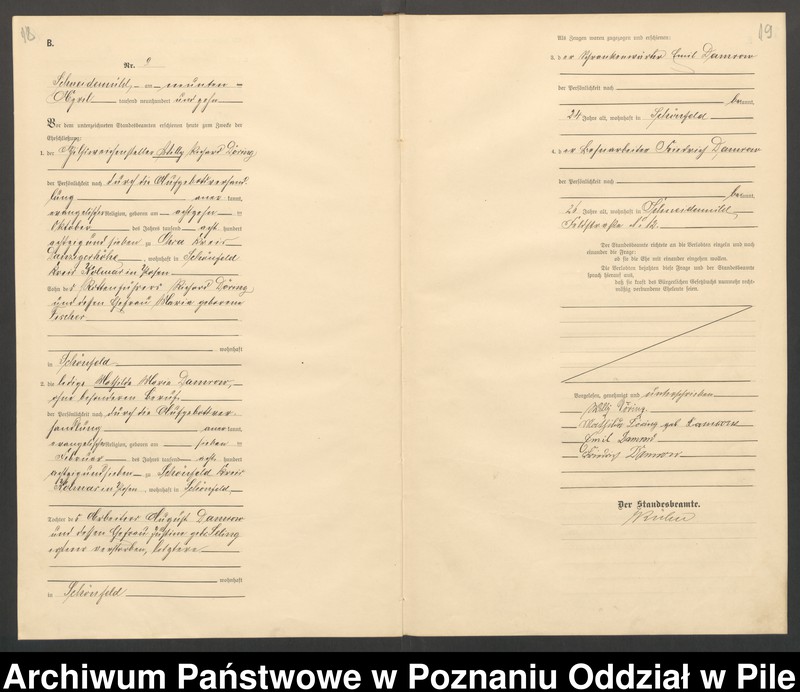 18
B.
Nr. 9
Schneidemühl, am neunten
April tausend neunhundert und zehn
Vor dem unterzeichneten Standesbeamten erschienen heute zum Zwecke der
Eheschließung:
1. der Willy Richard Döring
der Persönlichkeit nach durch die Aufgebotsverhand
lung anerkannt,
evangelischer Religion, geboren am achtzehn
Oktober des Jahres tausend acht hundert
achtzig und sieben zu Kreis
Danzigerhöhe, wohnhaft in Schönfeld
Kreis Kolmar in Posen
Sohn des Rottenführers Richard Döring
und dessen Ehefrau Maria geborene
Fischer
wohnhaft
in Schönfeld
2. die ledige Mathilde Maria Damrow,
ohne besonderen Beruf
der Persönlichkeit nach durch die Aufgebotsver-
handlung anerkannt,
evangelischer Religion, geboren am sieben
Februar des Jahres tausend acht hundert
achtzig und sieben zu Schönfeld Kreis
Kolmar in Posen, wohnhaft in Schönfeld
Tochter des Arbeiters August Damrow
und dessen Ehefrau Justine geb.
ersterer verstorben, letztere
wohnhaft
in Schönfeld
19
Als Zeugen waren zugezogen und erschienen:
3. der Schrankenwärter Emil Damrow
der Persönlichkeit nach
bekannt,
24 Jahre alt, wohnhaft in Schönfeld
4. der Bahnarbeiter Friedrich Damrow
der Persönlichkeit nach
bekannt,
26 Jahre alt, wohnhaft in Schneidemühl,
Feldstraße
Der Standesbeamte richtete an die Verlobten einzeln und nach
einander die Frage:
ob sie die Ehe mit einander eingehen wollen.
Die Verlobten bejahten diese Frage und der Standesbeamte
sprach hierauf aus,
daß sie kraft des Bürgerlichen Gesetzbuchs nunmehr recht-
mäßig verbundene Eheleute seien.
Vorgelesen, genehmigt und unterschrieben
Willy Döring
Mathilde Döring geb. Damrow
Emil Damrow
Friedrich Damrow
Der Standesbeamte.
Archiwum Państwowe w Poznaniu Oddział w Pile